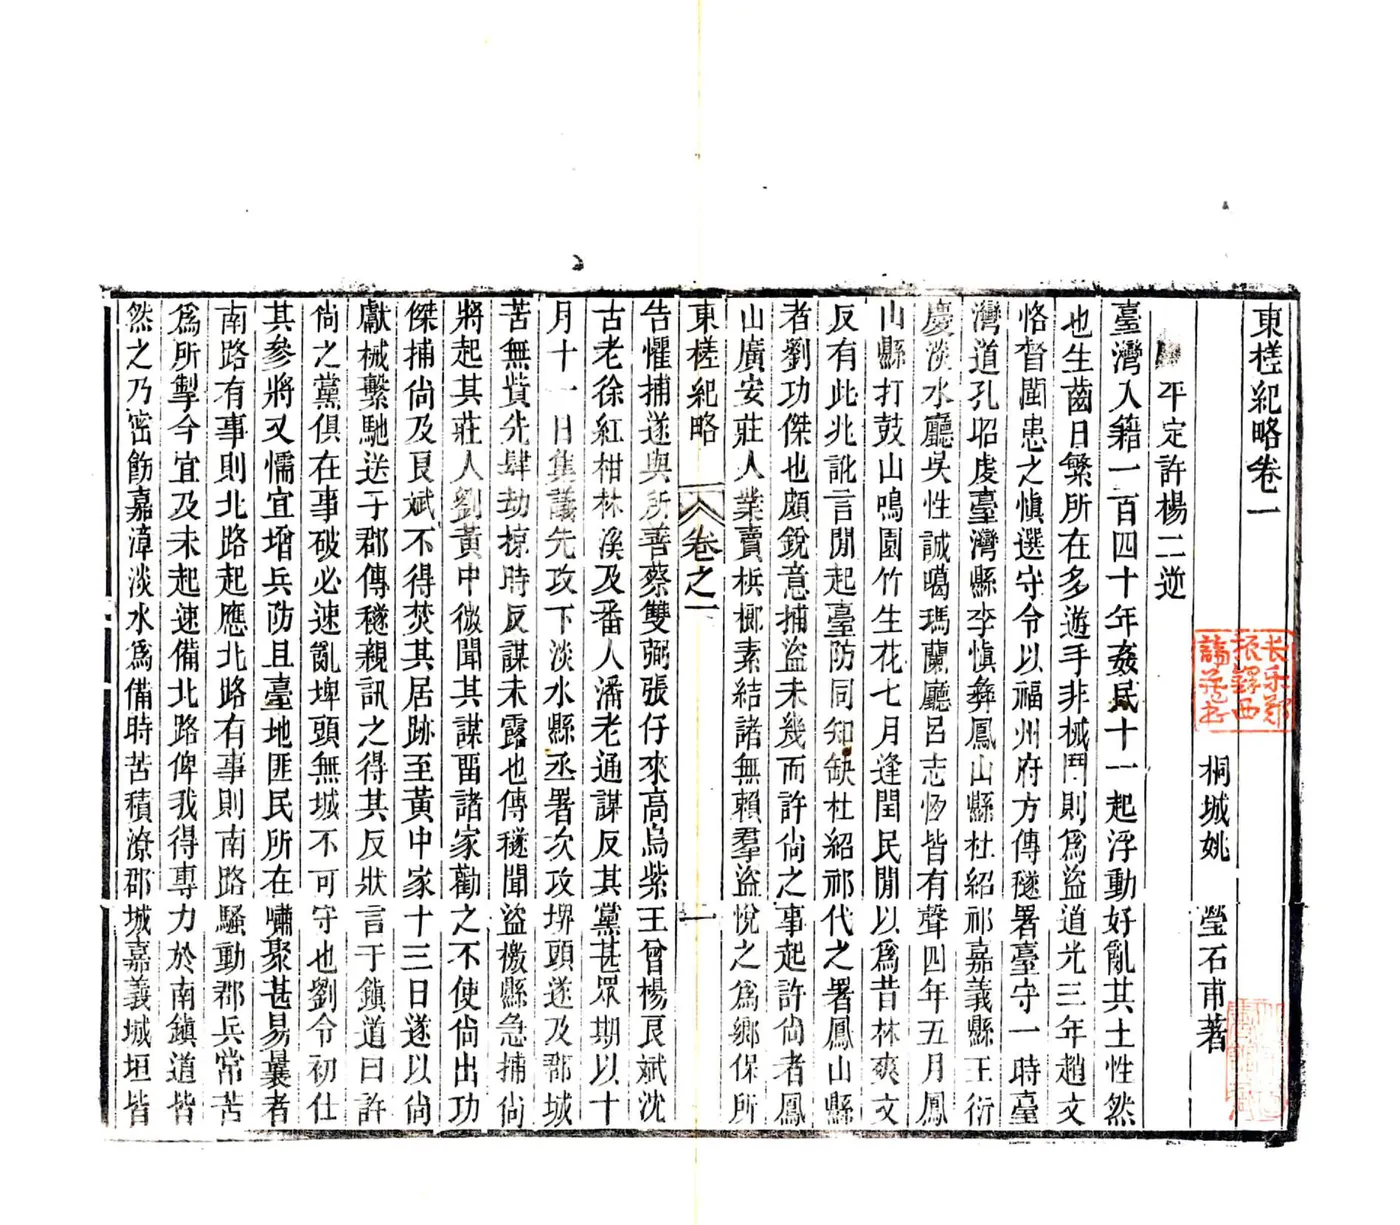 東槎紀略卷一
桐城姚　瑩石甫著
平定許楊二逆
臺灣入籍一百四十年姦民十一起浮動好亂其土性然
也生齒日繁所在多遊手非械鬥則爲盜道光三年趙文
恪督閩患之慎選守令以福州府方傳穟署臺守一時臺
灣道孔昭虔臺灣縣李慎彝鳳山縣杜紹祁嘉義縣王衍
慶淡水廳吳性誠噶瑪蘭廳呂志恆皆有聲四年五月鳳
山縣打鼓山鳴園竹生花七月逢閏民閒以爲昔林爽文
反有此兆訛言閒起臺防同知缺杜紹祁代之署鳳山縣
者劉功傑也頗銳意捕盜未幾而許尙之事起許尙者鳳
山廣安莊人業賣梹榔素結諸無賴羣盜悅之爲鄉保所
東槎紀略　卷之一　一
告懼捕遂與所善蔡雙弼張仔來高烏紫王曾楊良斌沈
古老徐紅柑林溪及番人潘老通謀反其黨甚眾期以十
月十一日集議先攻下淡水縣丞署次攻埤頭遂及郡城
苦無貲先肆劫掠時反謀未露也傳穟聞盜檄縣急捕尙
將起其莊人劉黃中微聞其謀畱諸家勸之不使尙出功
傑捕尙及良斌不得焚其居跡至黃中家十三日遂以尙
獻械繫馳送于郡傳穟親訊之得其反狀言于鎮道曰許
尙之黨俱在事破必速亂埤頭無城不可守也劉令初仕
其參將又懦宜增兵防且臺地匪民所在嘯聚甚易曩者
南路有事則北路起應北路有事則南路騷動郡兵常苦
爲所掣今宜及未起速備北路俾我得專力於南鎮道皆
然之乃密飭嘉漳淡水爲備時苦積潦郡城嘉義城垣皆
長樂鄭
振鐸西
諦藏書